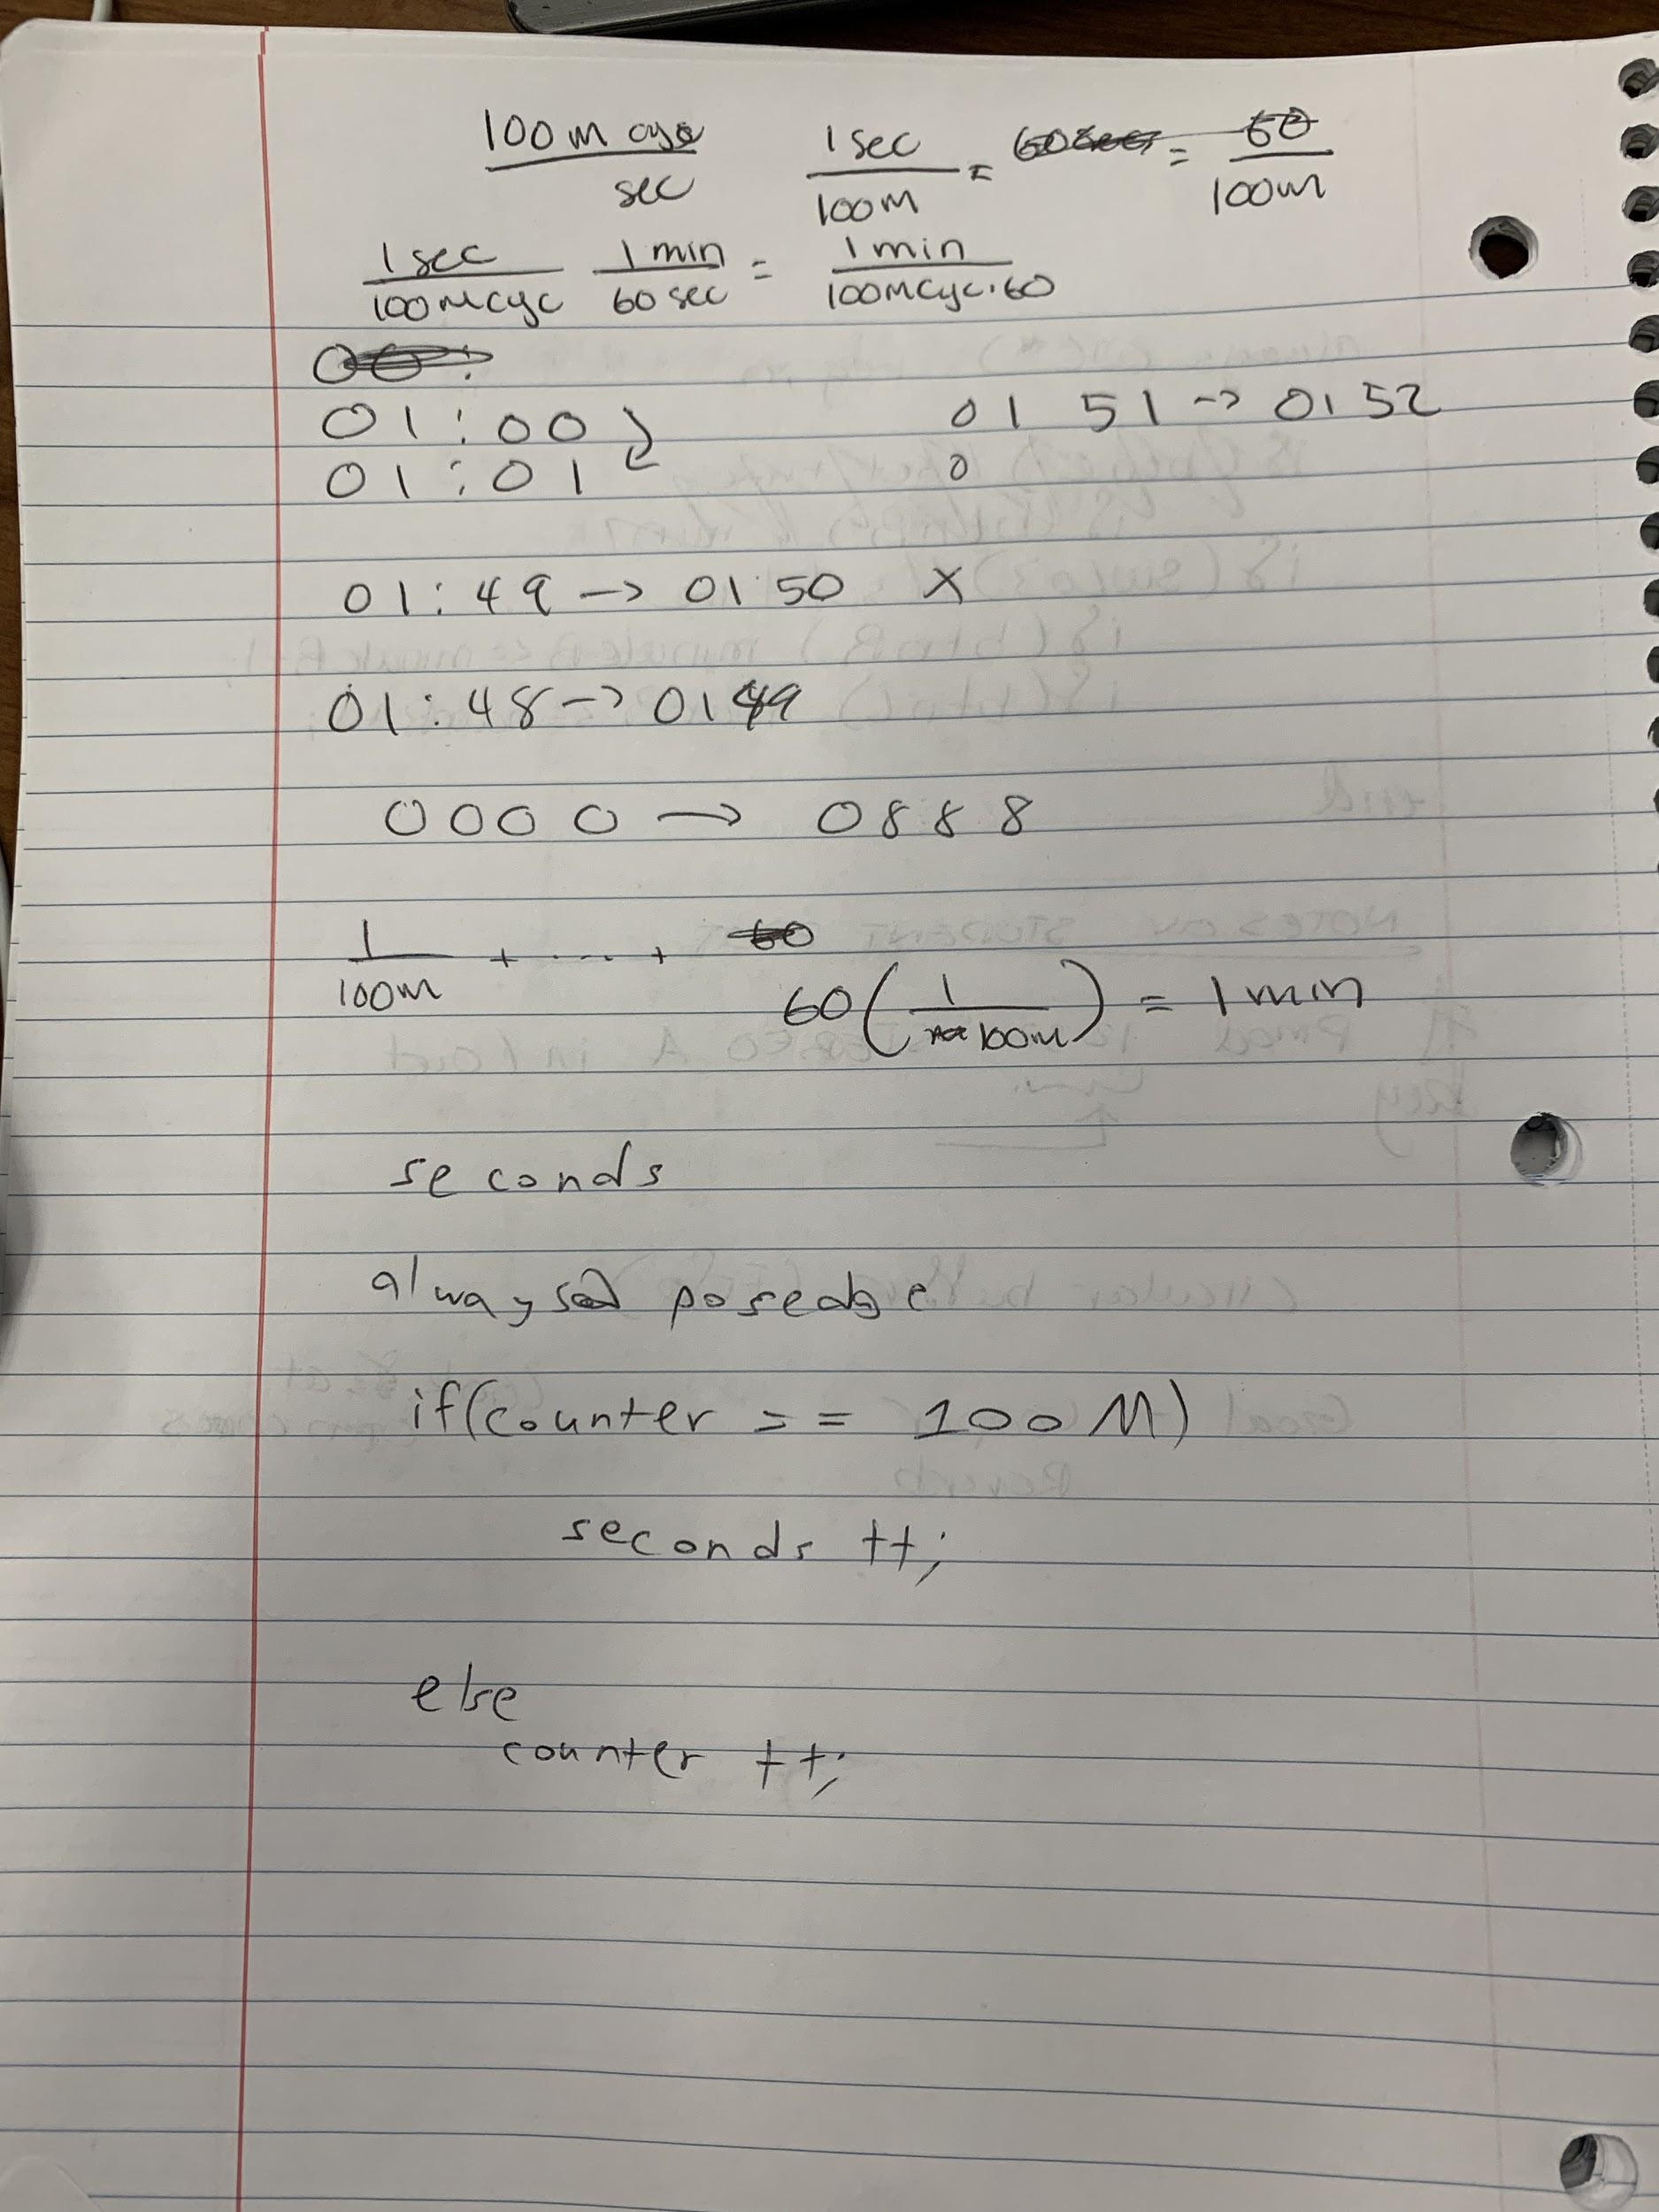 100M cyc / sec   1 sec / 100M = = 60 / 100M
1 sec / 100M cyc   1 min / 60 sec = 1 min / 100M cyc · 60
00:
01:00   01 51 -> 01 52
01:01   0
01:49 -> 01:50 X
01:48 -> 01 49
0000 → 0888
1 / 100M + ... + 60
60 ( 1 / 100M ) = 1 min
seconds
always@ posedge
if(counter >= 100M)
seconds ++;
else
counter ++;